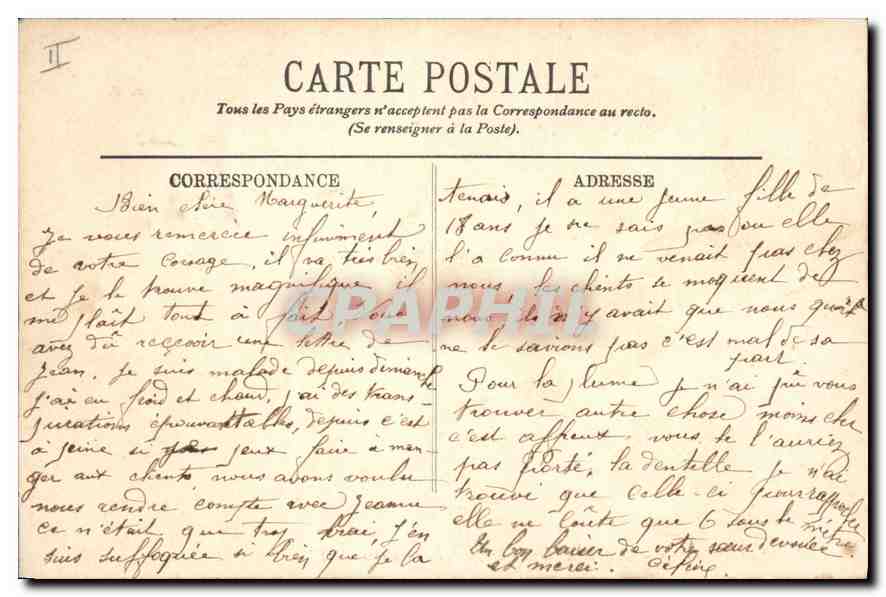 II
CARTE POSTALE
Tous les Pays étrangers n'acceptent pas la Correspondance au recto.
(Se renseigner à la Poste).
CORRESPONDANCE
Bien chère Marguerite,
Je vous remercie infiniment
de votre corsage, il va très bien
et je le trouve magnifique il
me plaît tout à fait, vous
avez dû reçevoir une lettre de
Jean. Je suis malade depuis dimanche
j'ai eu froid et chaud, j'ai des trans
pirations épouvantables, depuis c'est
à peine si je peux faire à man-
ger aux clients nous avons voulu
nous rendre compte avec Jeanne
ce n'était que trop vrai, j'en
suis suffoquée si bien que je la
ADRESSE
tenais, il a une jeune fille de
18 ans je ne sais pas ou elle
l'a connu il ne venait pas chez
nous, les clients se moquent de
nous ils n'y avait que nous qui
ne le savions pas c'est mal de sa
part.
Pour la plume je n'ai pu vous
trouver autre chose moins cher
c'est affreux vous ne l'auriez
pas porté, la dentelle je n'ai
trouvé que celle-ci pour rapprocher
elle ne coûte que 6 sous le mètre.
Un bon baiser de votre sœur dévouée
et merci.
CPAPHIL